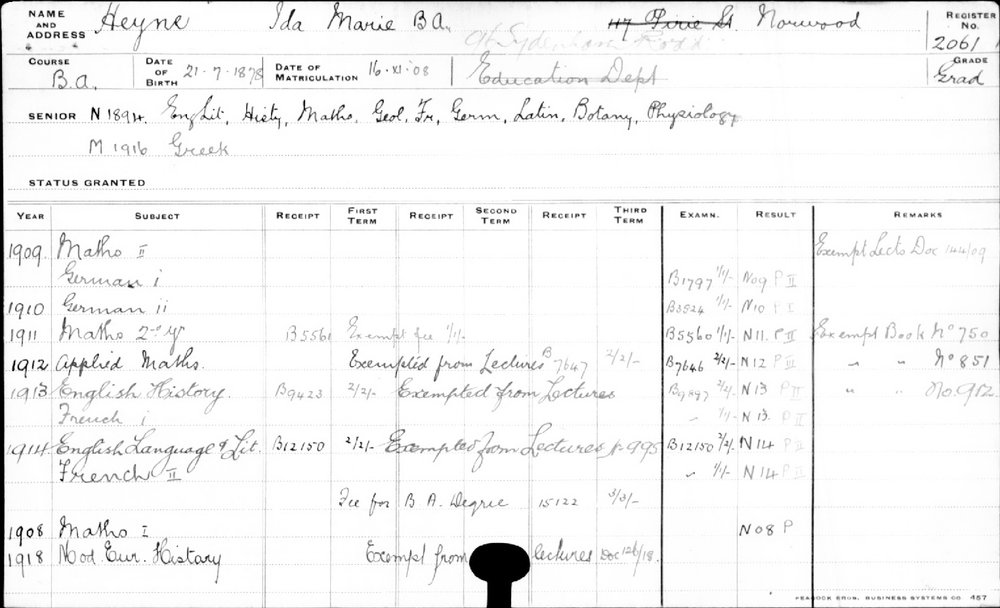 NAME AND ADDRESS Heyne Ida Marie B.A. 117 Pirie St. Norwood REGISTER No. 2061
at Sydenham Road
COURSE B.A. DATE OF BIRTH 21-7-1878 DATE OF MATRICULATION 16-XI-08 Education Dept GRADE Grad
SENIOR N 1894. Eng Lit, Histy, Maths, Geol, Fr, Germ, Latin, Botany, Physiology
M 1916 Greek
STATUS GRANTED
YEAR SUBJECT RECEIPT FIRST TERM RECEIPT SECOND TERM RECEIPT THIRD TERM EXAMN. RESULT REMARKS
1909 Maths II Exempt Lects Doc 144/09
German i B1797 1/1/- N09 P II
1910 German ii B3524 1/1/- N10 P I
1911 Maths 2nd yr B5561 Exempt fee 1/1/- B5560 1/1/- N11. P II Exempt Book No 750
1912 Applied Maths. Exempted from Lectures B7647 2/2/- B7646 2/2/- N12 P III " " No 851
1913 English History. B9423 2/2/- Exempted from Lectures B9897 2/2/- N13 P II " " No. 912
French i " 1/1/- N13 P II
1914 English Language & Lit. B12150 2/2/- Exempted from Lectures 995 B12150 2/2/- N14 P II
French II " 1/1/- N14 P II
Fee for B A. Degree 15122 3/3/-
1908 Maths I N08 P
1918 Mod Eur. History Exempt from lectures Doc 126/18.
PEACOCK BROS. BUSINESS SYSTEMS CO 457